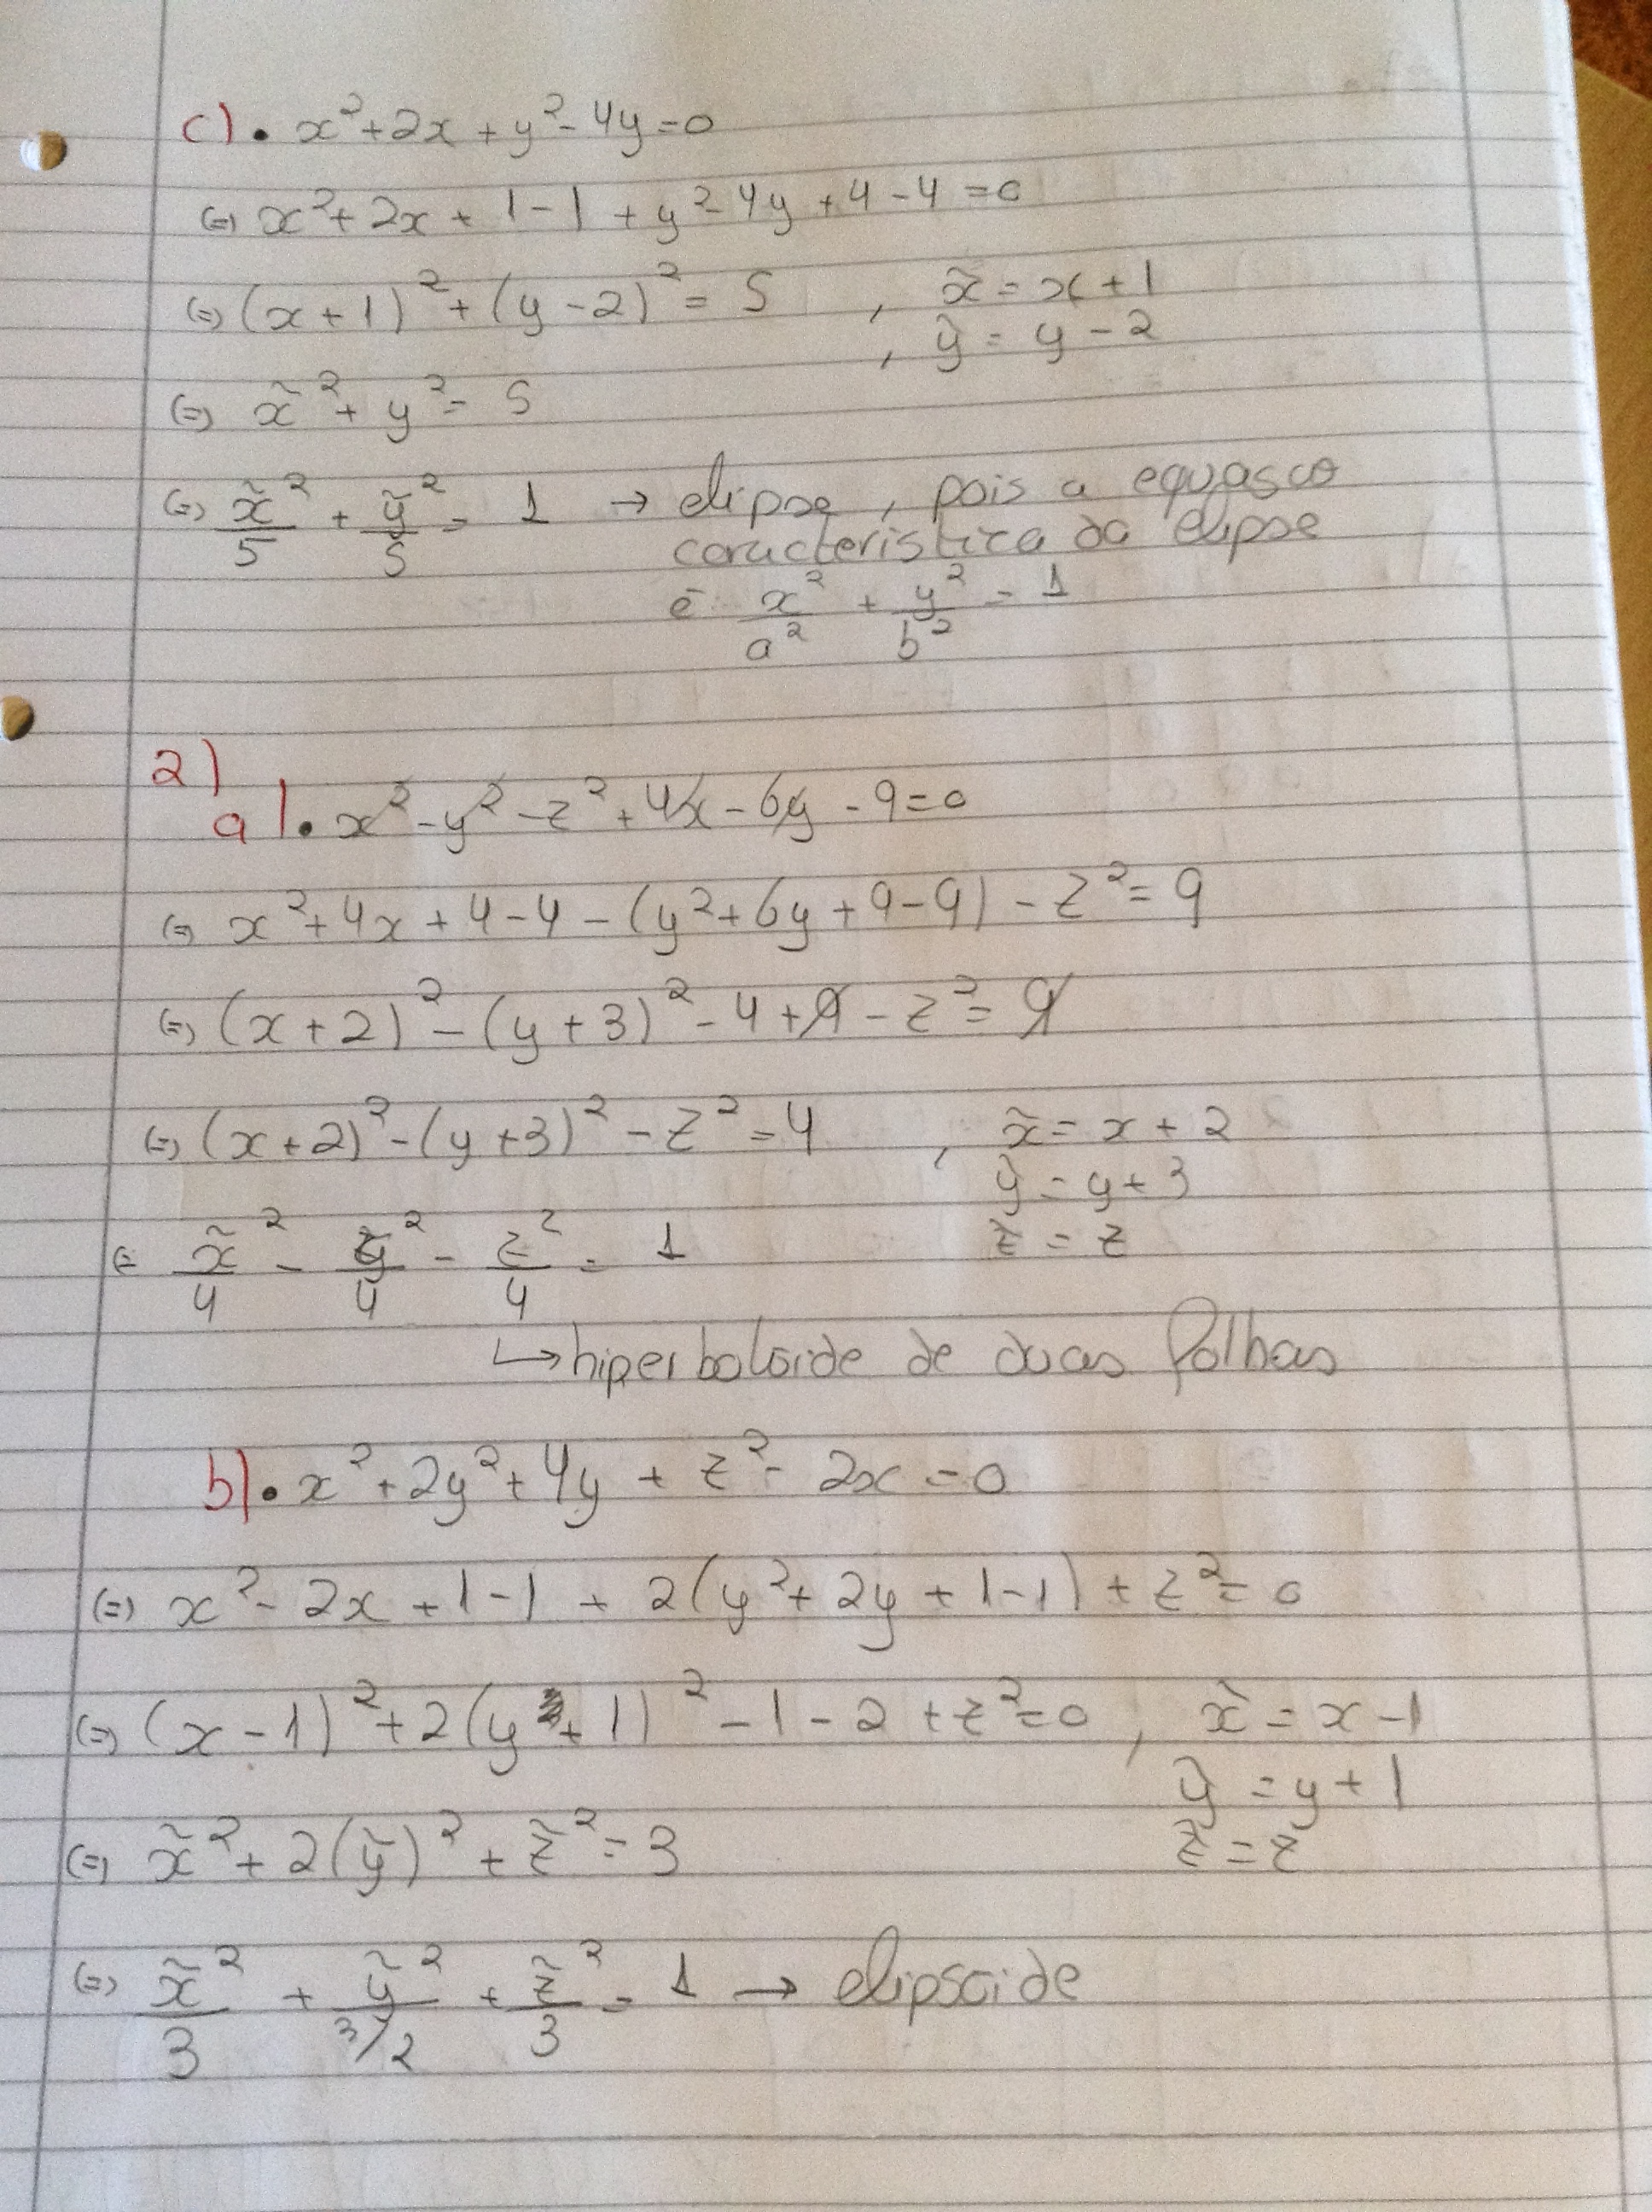 c) • x² + 2x + y² - 4y = 0
(=) x² + 2x + 1 - 1 + y² - 4y + 4 - 4 = 0
(=) (x + 1)² + (y - 2)² = 5 , x̃ = x + 1
, ỹ = y - 2
(=) x̃² + y² = 5
(=) x̃²/5 + ỹ²/5 = 1 → elipse, pois a equasco
caracteristica da elipse
é x²/a² + y²/b² = 1
2)
a) • x² - y² - z² + 4x - 6y - 9 = 0
(=) x² + 4x + 4 - 4 - (y² + 6y + 9 - 9) - z² = 9
(=) (x + 2)² - (y + 3)² - 4 + 9 - z² = 9
(=) (x + 2)² - (y + 3)² - z² = 4 , x̃ = x + 2
ỹ = y + 3
z̃ = z
(= x̃²/4 - ỹ²/4 - z̃²/4 = 1
↳ hiperboloide de duas folhas
b) • x² + 2y² + 4y + z² - 2x = 0
(=) x² - 2x + 1 - 1 + 2(y² + 2y + 1 - 1) + z² = 0
(=) (x - 1)² + 2(y + 1)² - 1 - 2 + z² = 0 , x̃ = x - 1
ỹ = y + 1
z̃ = z
(=) x̃² + 2(ỹ)² + z̃² = 3
(=) x̃²/3 + ỹ²/3/2 + z̃²/3 = 1 → elipsoide